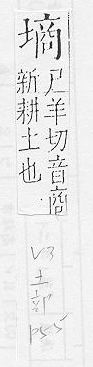 墒
尸羊切音商
新耕土也
V3
土部
p55